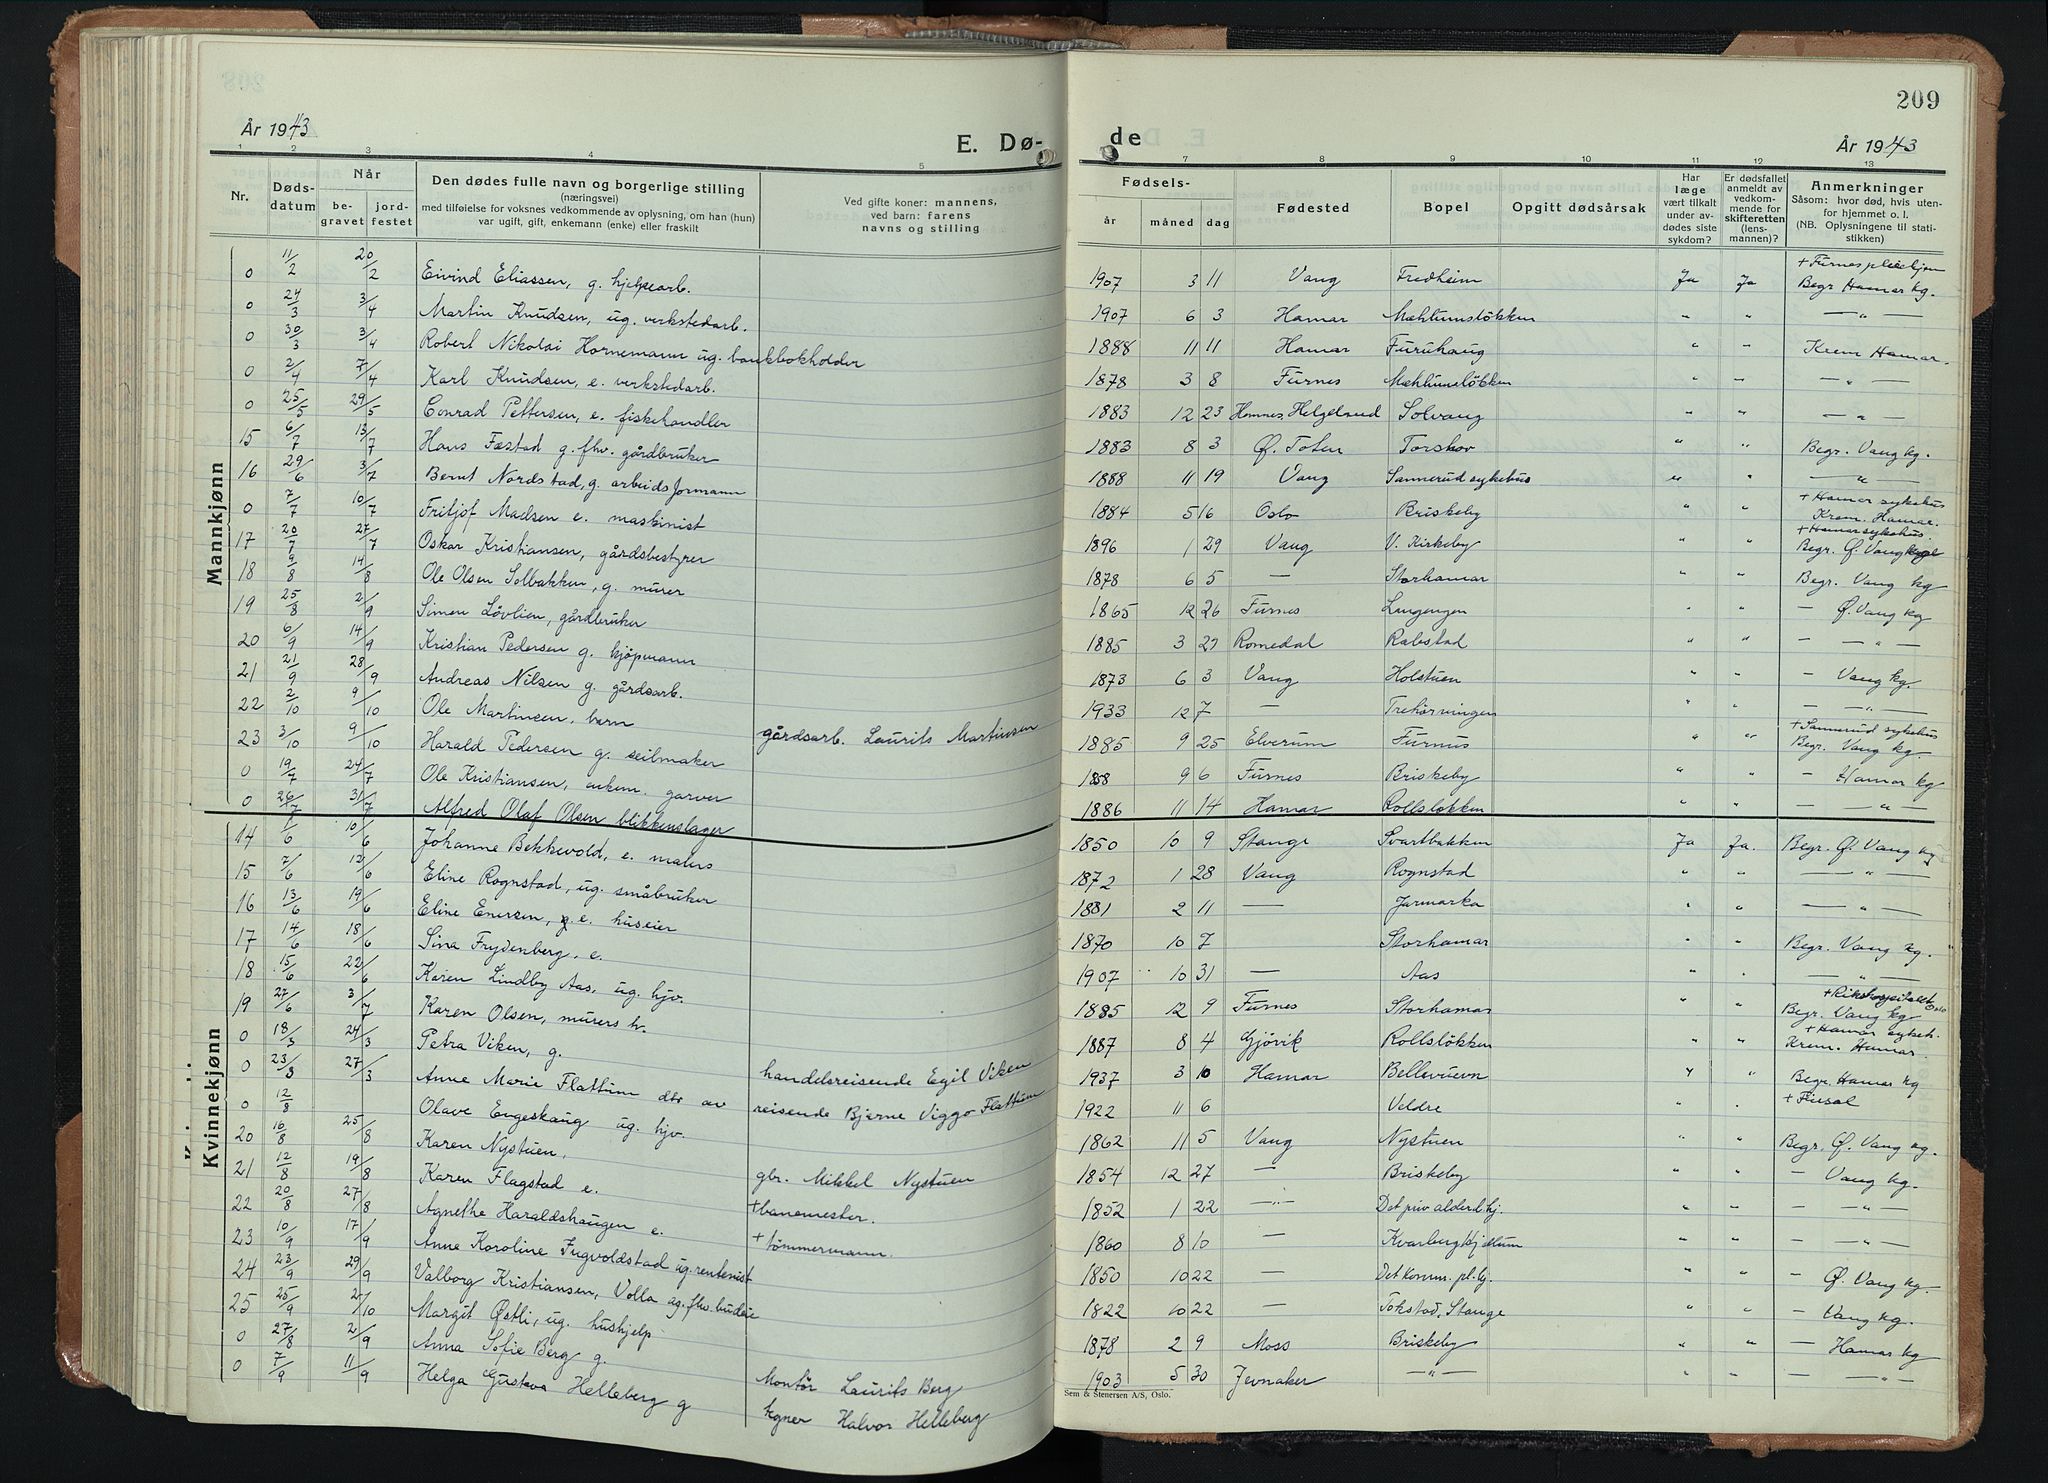 209
År 1943
E. Dø-
de
År 1943
1 2 3 4 5 7 8 9 10 11 12 13
Nr.
Døds-
datum
Når
be-
gravet
jord-
festet
Den dødes fulle navn og borgerlige stilling
(næringsvei)
med tilføielse for voksnes vedkommende av oplysning, om han (hun)
var ugift, gift, enkemann (enke) eller fraskilt
Ved gifte koner: mannens,
ved barn: farens
navns og stilling
Fødsels-
år måned dag
Fødested
Bopel
Opgitt dødsårsak
Har
læge
vært tilkalt
under av-
dødes siste
sykdom?
Er dødsfallet
anmeldt av
vedkom-
mende for
skifteretten
(lens-
mannen)?
Anmerkninger
Såsom: hvor død, hvis uten-
for hjemmet o. l.
(NB. Oplysningene til stati-
stikken)
Mannkjønn
0 11/2 20/2 Eivind Eliassen, g. hjelpearb. 1907 3 11 Vang Fredheim Ja Ja + Furnes pleiehjem Begr Hamar kg.
0 24/3 3/4 Martin Knudsen, ug. verkstedarb. 1907 6 3 Hamar Mæhlumsløkken " " — " —
0 30/3 3/4 Robert Nikolai Hornemann ug. bankbokholder 1888 11 11 Hamar Furuhaug " " Krem Hamar
0 2/4 7/4 Karl Knudsen, e. verkstedarb. 1878 3 8 Furnes Mæhlumsløkken " " — " —
0 25/5 29/5 Conrad Pettersen, e. fiskehandler 1883 12 23 Hemnes, Helgeland Solvang " " — " —
15 6/7 13/7 Hans Fæstad g. fhv. gårdbruker 1883 8 3 Ø. Toten Torshov " " Begr. Vang kg.
16 29/6 3/7 Bernt Nordstad, g. arbeidsformann 1888 11 19 Vang Sannerud sykehus " " — " —
0 7/7 10/7 Fritjof Madsen e. maskinist 1884 5 16 Oslo Briskeby " " + Hamar sykehus Krem. Hamar.
17 20/7 27/7 Oskar Kristiansen, gårdsbestyrer 1896 1 29 Vang V. Kirkeby " " + Hamar sykehus Begr. Ø. Vang kg
18 9/8 14/8 Ole Olsen Solbakken, g. murer 1878 6 5 — Storhamar " " Begr. Vang kg
19 25/8 2/9 Simen Løvlien, gårdbruker 1865 12 26 Furnes Lungengen " " — Ø. Vang kg
20 6/9 14/9 Kristian Pedersen g. kjøpmann 1885 3 27 Romedal Rabstad " " — — " —
21 21/9 28/9 Andreas Nilsen g. gårdsarb. 1873 6 3 Vang Holstuen " " — Vang kg.
22 2/10 9/10 Ole Martinsen, barn gårdsarb. Laurits Martinsen 1933 12 7 — Trehörningen " " — — " —
23 3/10 9/10 Harald Pedersen g. seilmaker 1885 9 25 Elverum Furnus " " + Sannerud sykehus Begr. Vang kg.
0 19/7 24/7 Ole Kristiansen, enkem. garver 1858 9 6 Furnes Briskeby " " — Hamar kg
0 26/7 31/7 Alfred Olaf Olsen blikkenslager 1886 11 14 Hamar Rollsløkken " " — — " —
Kvinnekjønn
14 1/6 10/6 Johanne Bekkevold, e. malers 1850 10 9 Stange Svartbakken Ja Ja. Begr. Ø. Vang kg
15 7/6 12/6 Eline Rognstad, ug. småbruker 1872 1 28 Vang Rognstad " " — " —
16 13/6 19/6 Eline Enersen, e. huseier 1881 2 11 — Jarmarka " " — " —
17 14/6 18/6 Sina Frydenberg, e. 1870 10 7 Storhamar " " Begr. Vang kg.
18 15/6 22/6 Karen Lindby Aas, ug. hjv. 1907 10 31 — Aas " " — " —
19 27/6 3/7 Karen Olsen, murers h. 1885 12 9 Furnes Storhamar " " + Rikshospitalet Oslo Begr. Vang kg
0 18/3 24/3 Petra Viken, g. handelsreisende Egil Viken 1887 8 4 Gjøvik Rollsløkken " " + Hamar sykeh. Krem. Hamar.
0 23/3 27/3 Anne Marie Flattum dtr av reisende Bjerne Viggo Flattum 1937 3 10 Hamar Bellevuevn " " Begr. Hamar kg
0 12/8 Olave Engeskaug ug. hjv. 1922 11 6 Veldre " " +
20 16/8 25/8 Karen Nystuen, gbr. Mikkel Nystuen 1862 11 5 Vang Nystuen " " Begr. Ø. Vang kg.
21 12/8 19/8 Karen Flagstad e. + banemester. 1854 12 27 — Briskeby " " — Vang kg.
22 20/8 27/8 Agnethe Haraldshaugen e. + tömmermann. 1852 1 22 — " — Det priv alderd.hj. " " — " —
23 10/9 17/9 Anne Karoline Fugvoldstad ug. rentenist 1860 8 10 — Kvarberg Hjellum " " — " —
24 23/9 29/9 Valborg Kristiansen, Volla ug. fhv. budeie 1850 10 22 — Det komm. pl.hj. " " — Ø. Vang kg.
25 25/9 2/10 Margit Østli, ug. hushjelp 1822 10 22 — Tokstad, Stange " " — Vang kg.
0 27/8 2/9 Anna Sofie Berg g. Montör Laurits Berg 1878 2 9 Moss Briskeby " " — Hamar kg
0 7/9 11/9 Helga Gustava Helleberg g Halvor Helleberg 1903 5 30 Jevnaker — " — " " — — " —
Sem & Stenersen A/S, Oslo.